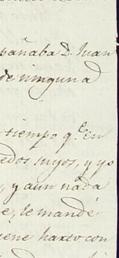 pañaba D. Juan
de ninguna
tiempo q.e en
edos suyos, y yo
y aun nada
e, le mandé
iene harto con